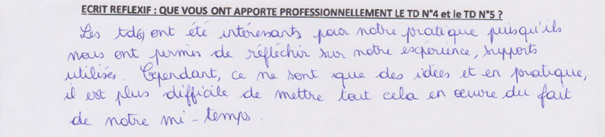 ECRIT REFLEXIF : QUE VOUS ONT APPORTE PROFESSIONNELLEMENT LE TD N°4 et le TD N°5 ?
Les tds ont été intéressants pour notre pratique puisqu'ils
nous ont permis de réfléchir sur notre expérience, supports
utilisés. Cependant, ce ne sont que des idées et en pratique,
il est plus difficile de mettre tout cela en œuvre du fait
de notre mi-temps.